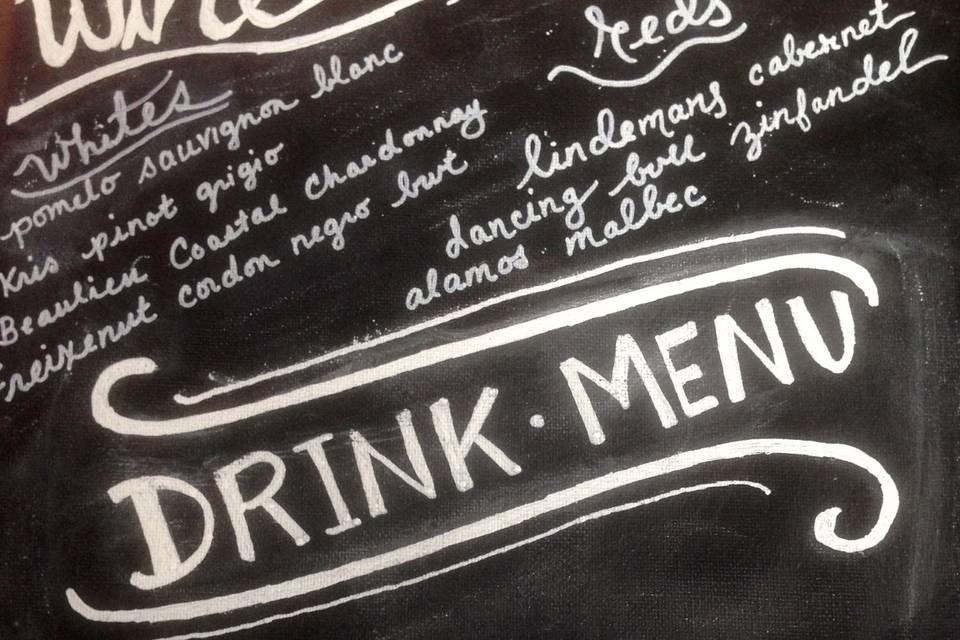 Wine
Whites
pomelo sauvignon blanc
Kris pinot grigio
Beaulieu Coastal Chardonnay
Freixenut cordon negro brut
Reds
lindemans cabernet
dancing bull zinfandel
alamos malbec
DRINK · MENU